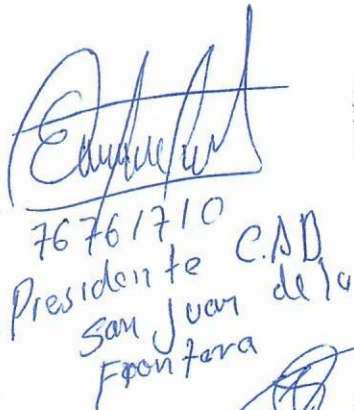 76761710
Presidente C.AD
San Juan de la
Frontera